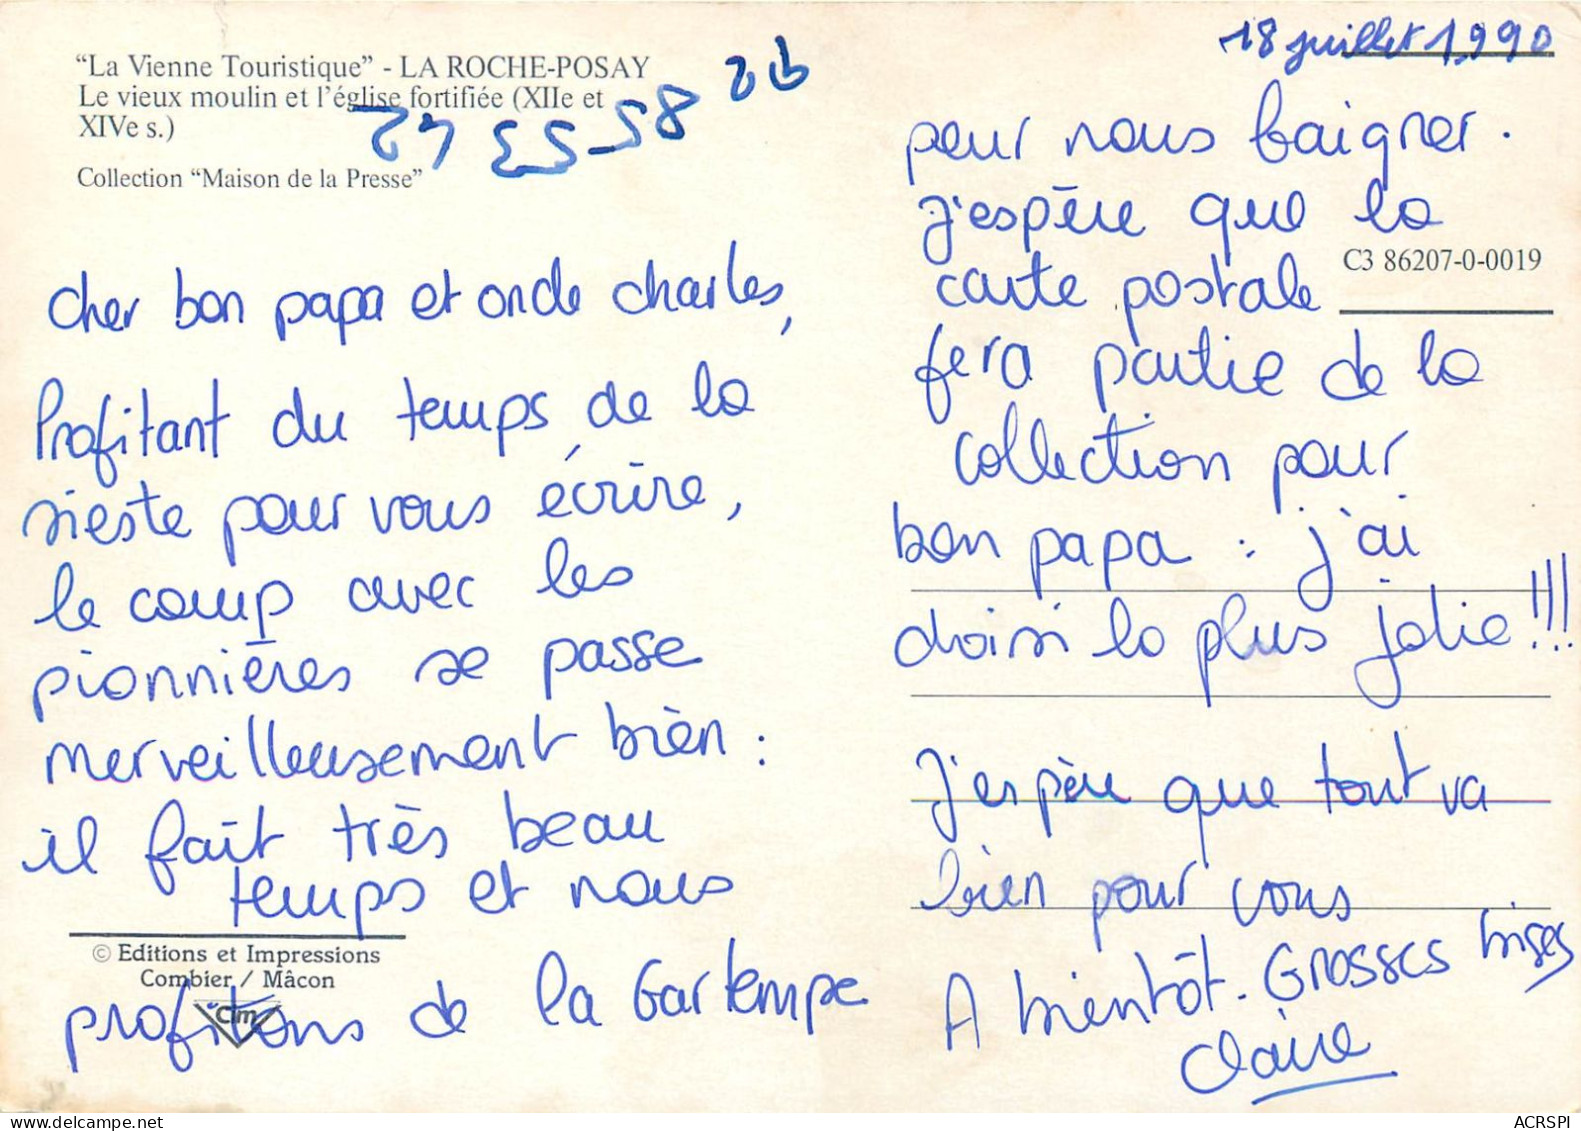 "La Vienne Touristique" - LA ROCHE-POSAY
Le vieux moulin et l'église fortifiée (XIIe et
XIVe s.)
Collection "Maison de la Presse"
cher bon papa et oncle charles,
Profitant du temps de la
sieste pour vous écrire,
le camp avec les
pionnières se passe
merveilleusement bien :
il fait très beau
temps et nous
© Editions et Impressions
Combier / Mâcon
Cim
profitons de la Gartempe
18 juillet 1990
pour nous baigner.
J'espère que la
C3 86207-0-0019
carte postale
fera partie de la
collection pour
bon papa : j'ai
choisi la plus jolie !!!
J'espère que tout va
bien pour vous
A bientôt. GROSSES bises
Claire
ACRSPI